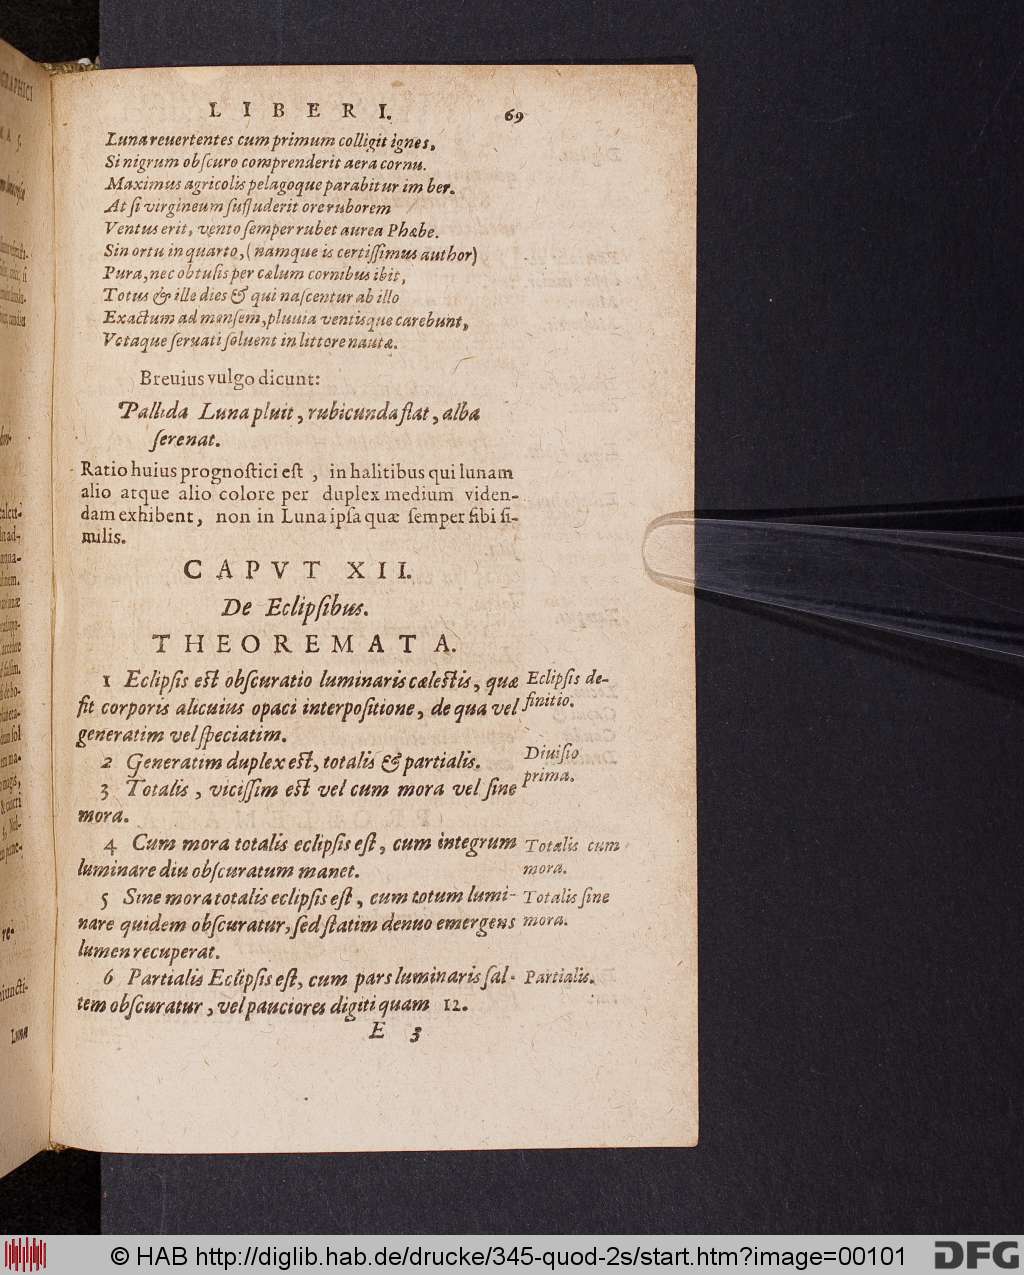 LIBER I. 69
Luna reuertentes cum primum colligit ignes,
Si nigrum obſcuro comprenderit aera cornu.
Maximus agricolis pelagoque parabitur imber.
At ſi virgineum ſuffuderit ore ruborem
Ventus erit, vento ſemper rubet aurea Phœbe.
Sin ortu in quarto, (namque is certiſſimus author)
Pura, nec obtuſis per cælum cornibus ibit,
Totus & ille dies & qui naſcentur ab illo
Exactum ad menſem, pluuia ventisque carebunt,
Votaque ſeruati ſoluent in littore nautæ.
Breuius vulgo dicunt:
Pallida Luna pluit, rubicunda flat, alba
ſerenat.
Ratio huius prognoſtici eſt, in halitibus qui lunam
alio atque alio colore per duplex medium viden-
dam exhibent, non in Luna ipſa quæ ſemper ſibi ſi-
milis.
CAPVT XII.
De Eclipſibus.
THEOREMATA.
1 Eclipſis eſt obſcuratio luminaris cæleſtis, quæ
fit corporis alicuius opaci interpoſitione, de qua vel
generatim vel ſpeciatim.
Eclipſis de-
finitio.
2 Generatim duplex eſt, totalis & partialis.
Diuiſio
prima.
3 Totalis, viciſſim eſt vel cum mora vel ſine
mora.
4 Cum mora totalis eclipſis eſt, cum integrum
luminare diu obſcuratum manet.
Totalis cum
mora.
5 Sine mora totalis eclipſis eſt, cum totum lumi-
nare quidem obſcuratur, ſed ſtatim denuo emergens
lumen recuperat.
Totalis ſine
mora.
6 Partialis Eclipſis eſt, cum pars luminaris ſal-
tem obſcuratur, vel pauciores digiti quam 12.
Partialis.
E 3
© HAB http://diglib.hab.de/drucke/345-quod-2s/start.htm?image=00101
DFG